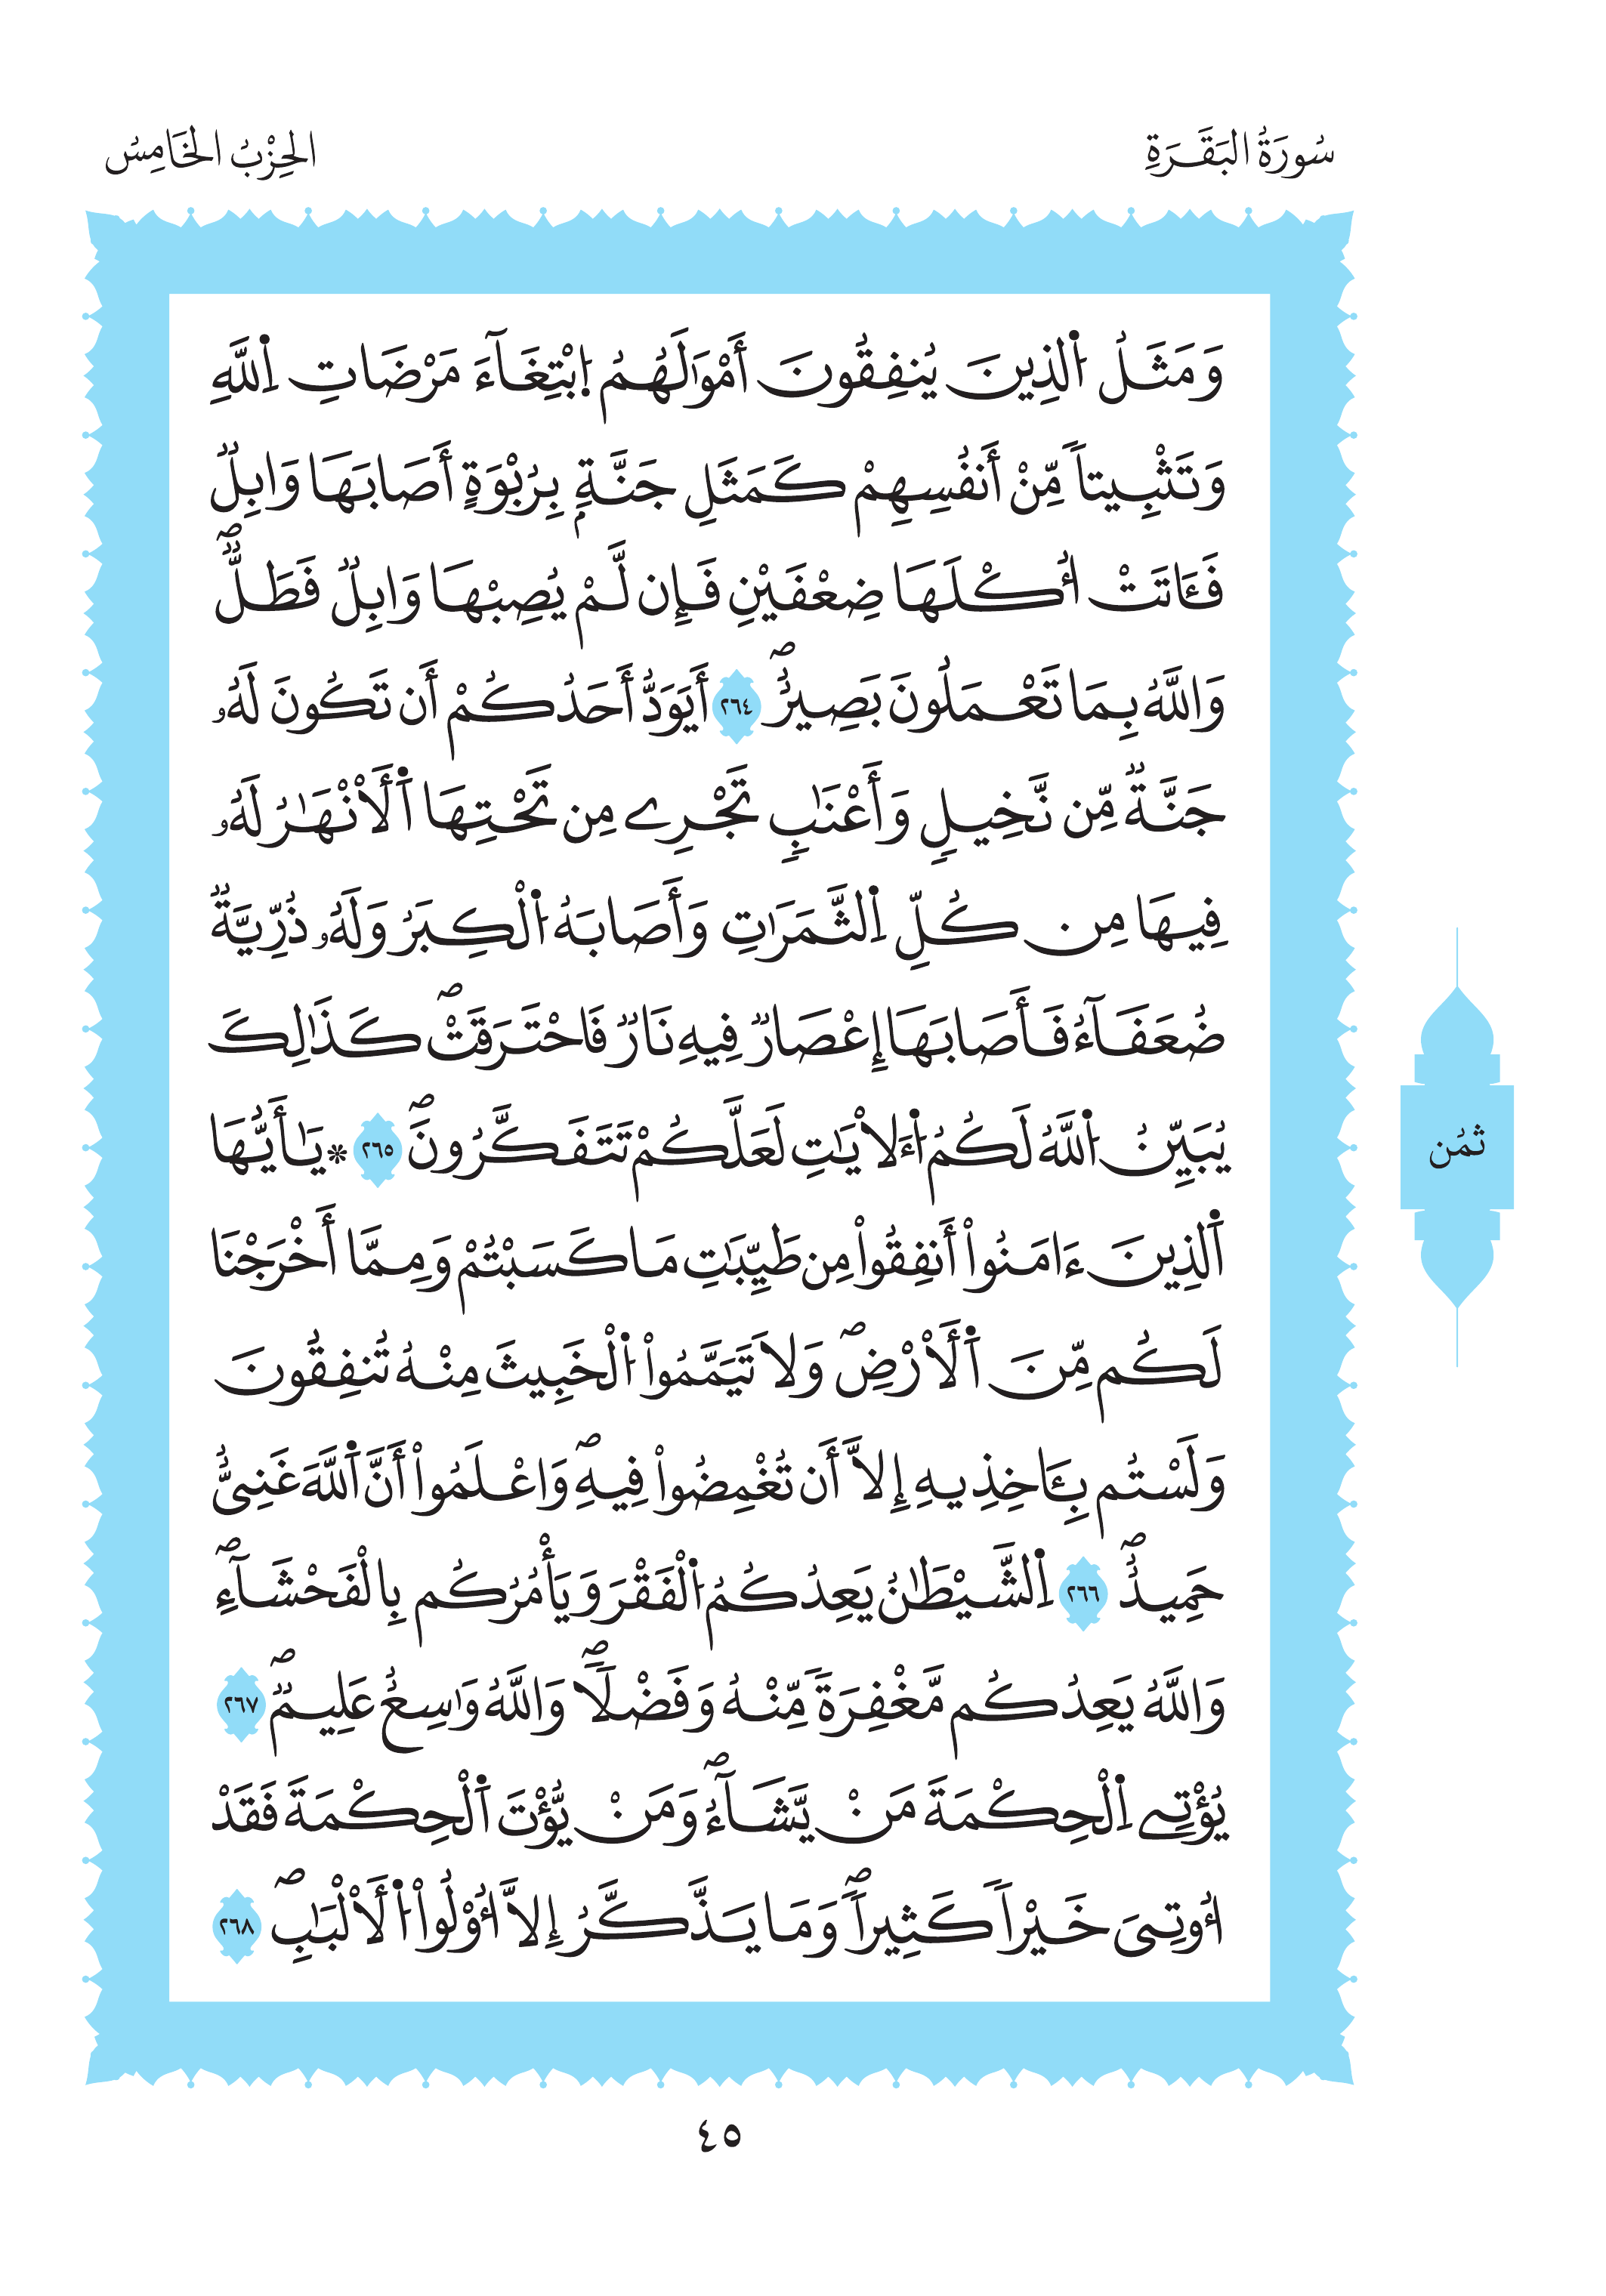 سُورَةُ البَقَرَةِ
الحِزْبُ الخَامِسُ
وَمَثَلُ اُ۬لذِينَ يُنفِقُونَ أَمْوَٰلَهُمُ اُ۪بْتِغَآءَ مَرْضَاتِ اِ۬للَّهِ
وَتَثْبِيتاٗ مِّنْ أَنفُسِهِمْ كَمَثَلِ جَنَّةِۭ بِرُبْوَةٍ أَصَابَهَا وَابِلٞ
فَـَٔاتَتْ أُكْلَهَا ضِعْفَيْنِ فَإِن لَّمْ يُصِبْهَا وَابِلٞ فَطَلّٞۖ
وَاللَّهُ بِمَا تَعْمَلُونَ بَصِيرٌۖ ٢٦٤ أَيَوَدُّ أَحَدُكُمْ أَن تَكُونَ لَهُۥ
جَنَّةٞ مِّن نَّخِيلٖ وَأَعْنَٰبٖ تَجْرِے مِن تَحْتِهَا اَ۬لَانْهَٰرُ لَهُۥ
فِيهَا مِن كُلِّ اِ۬لثَّمَرَٰتِ وَأَصَابَهُ اُ۬لْكِبَرُ وَلَهُۥ ذُرِّيَّةٞ
ضُعَفَآءُ فَأَصَابَهَا إِعْصَارٞ فِيهِ نَارٞ فَاحْتَرَقَتْۖ كَذَٰلِكَ
يُبَيِّنُ اُ۬للَّهُ لَكُمُ اُ۬لَايَٰتِ لَعَلَّكُمْ تَتَفَكَّرُونَۖ ٢٦٥ * يَٰأَيُّهَا
اَ۬لذِينَ ءَامَنُواْ أَنفِقُواْ مِن طَيِّبَٰتِ مَا كَسَبْتُمْ وَمِمَّا أَخْرَجْنَا
لَكُم مِّنَ اَ۬لَارْضِۖ وَلَا تَيَمَّمُواْ اُ۬لْخَبِيثَ مِنْهُ تُنفِقُونَ
وَلَسْتُم بِـَٔاخِذِيهِ إِلَّا أَن تُغْمِضُواْ فِيهِۖ وَاعْلَمُواْ أَنَّ اَ۬للَّهَ غَنِيٌّ
حَمِيدٌۖ ٢٦٦ اِ۬لشَّيْطَٰنُ يَعِدُكُمُ اُ۬لْفَقْرَ وَيَأْمُرُكُم بِالْفَحْشَآءِۖ
وَاللَّهُ يَعِدُكُم مَّغْفِرَةٗ مِّنْهُ وَفَضْلاٗۖ وَاللَّهُ وَٰسِعٌ عَلِيمٞۖ ٢٦٧
يُؤْتِے اِ۬لْحِكْمَةَ مَنْ يَّشَآءُۖ وَمَنْ يُّؤْتَ اَ۬لْحِكْمَةَ فَقَدُ
اُوتِيَ خَيْراٗ كَثِيراٗۖ وَمَا يَذَّكَّرُ إِلَّا أُوْلُواْ اُ۬لَالْبَٰبِۖ ٢٦٨
ثمُن
٤٥